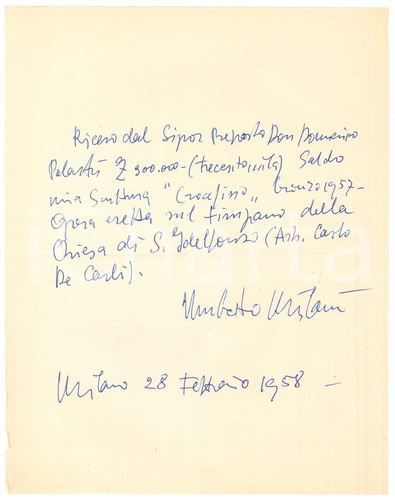 Ricevo dal Signor Preposto Don Domenico
£ 300.000 - (trecentomila) Saldo
mia Scultura "Crocifisso" bronzo 1957 -
Opera eretta sul timpano della
Chiesa di S. Ildefonso (Arch. Carlo
De Carli).
Umberto Milani
Milano 28 Febbraio 1958 -